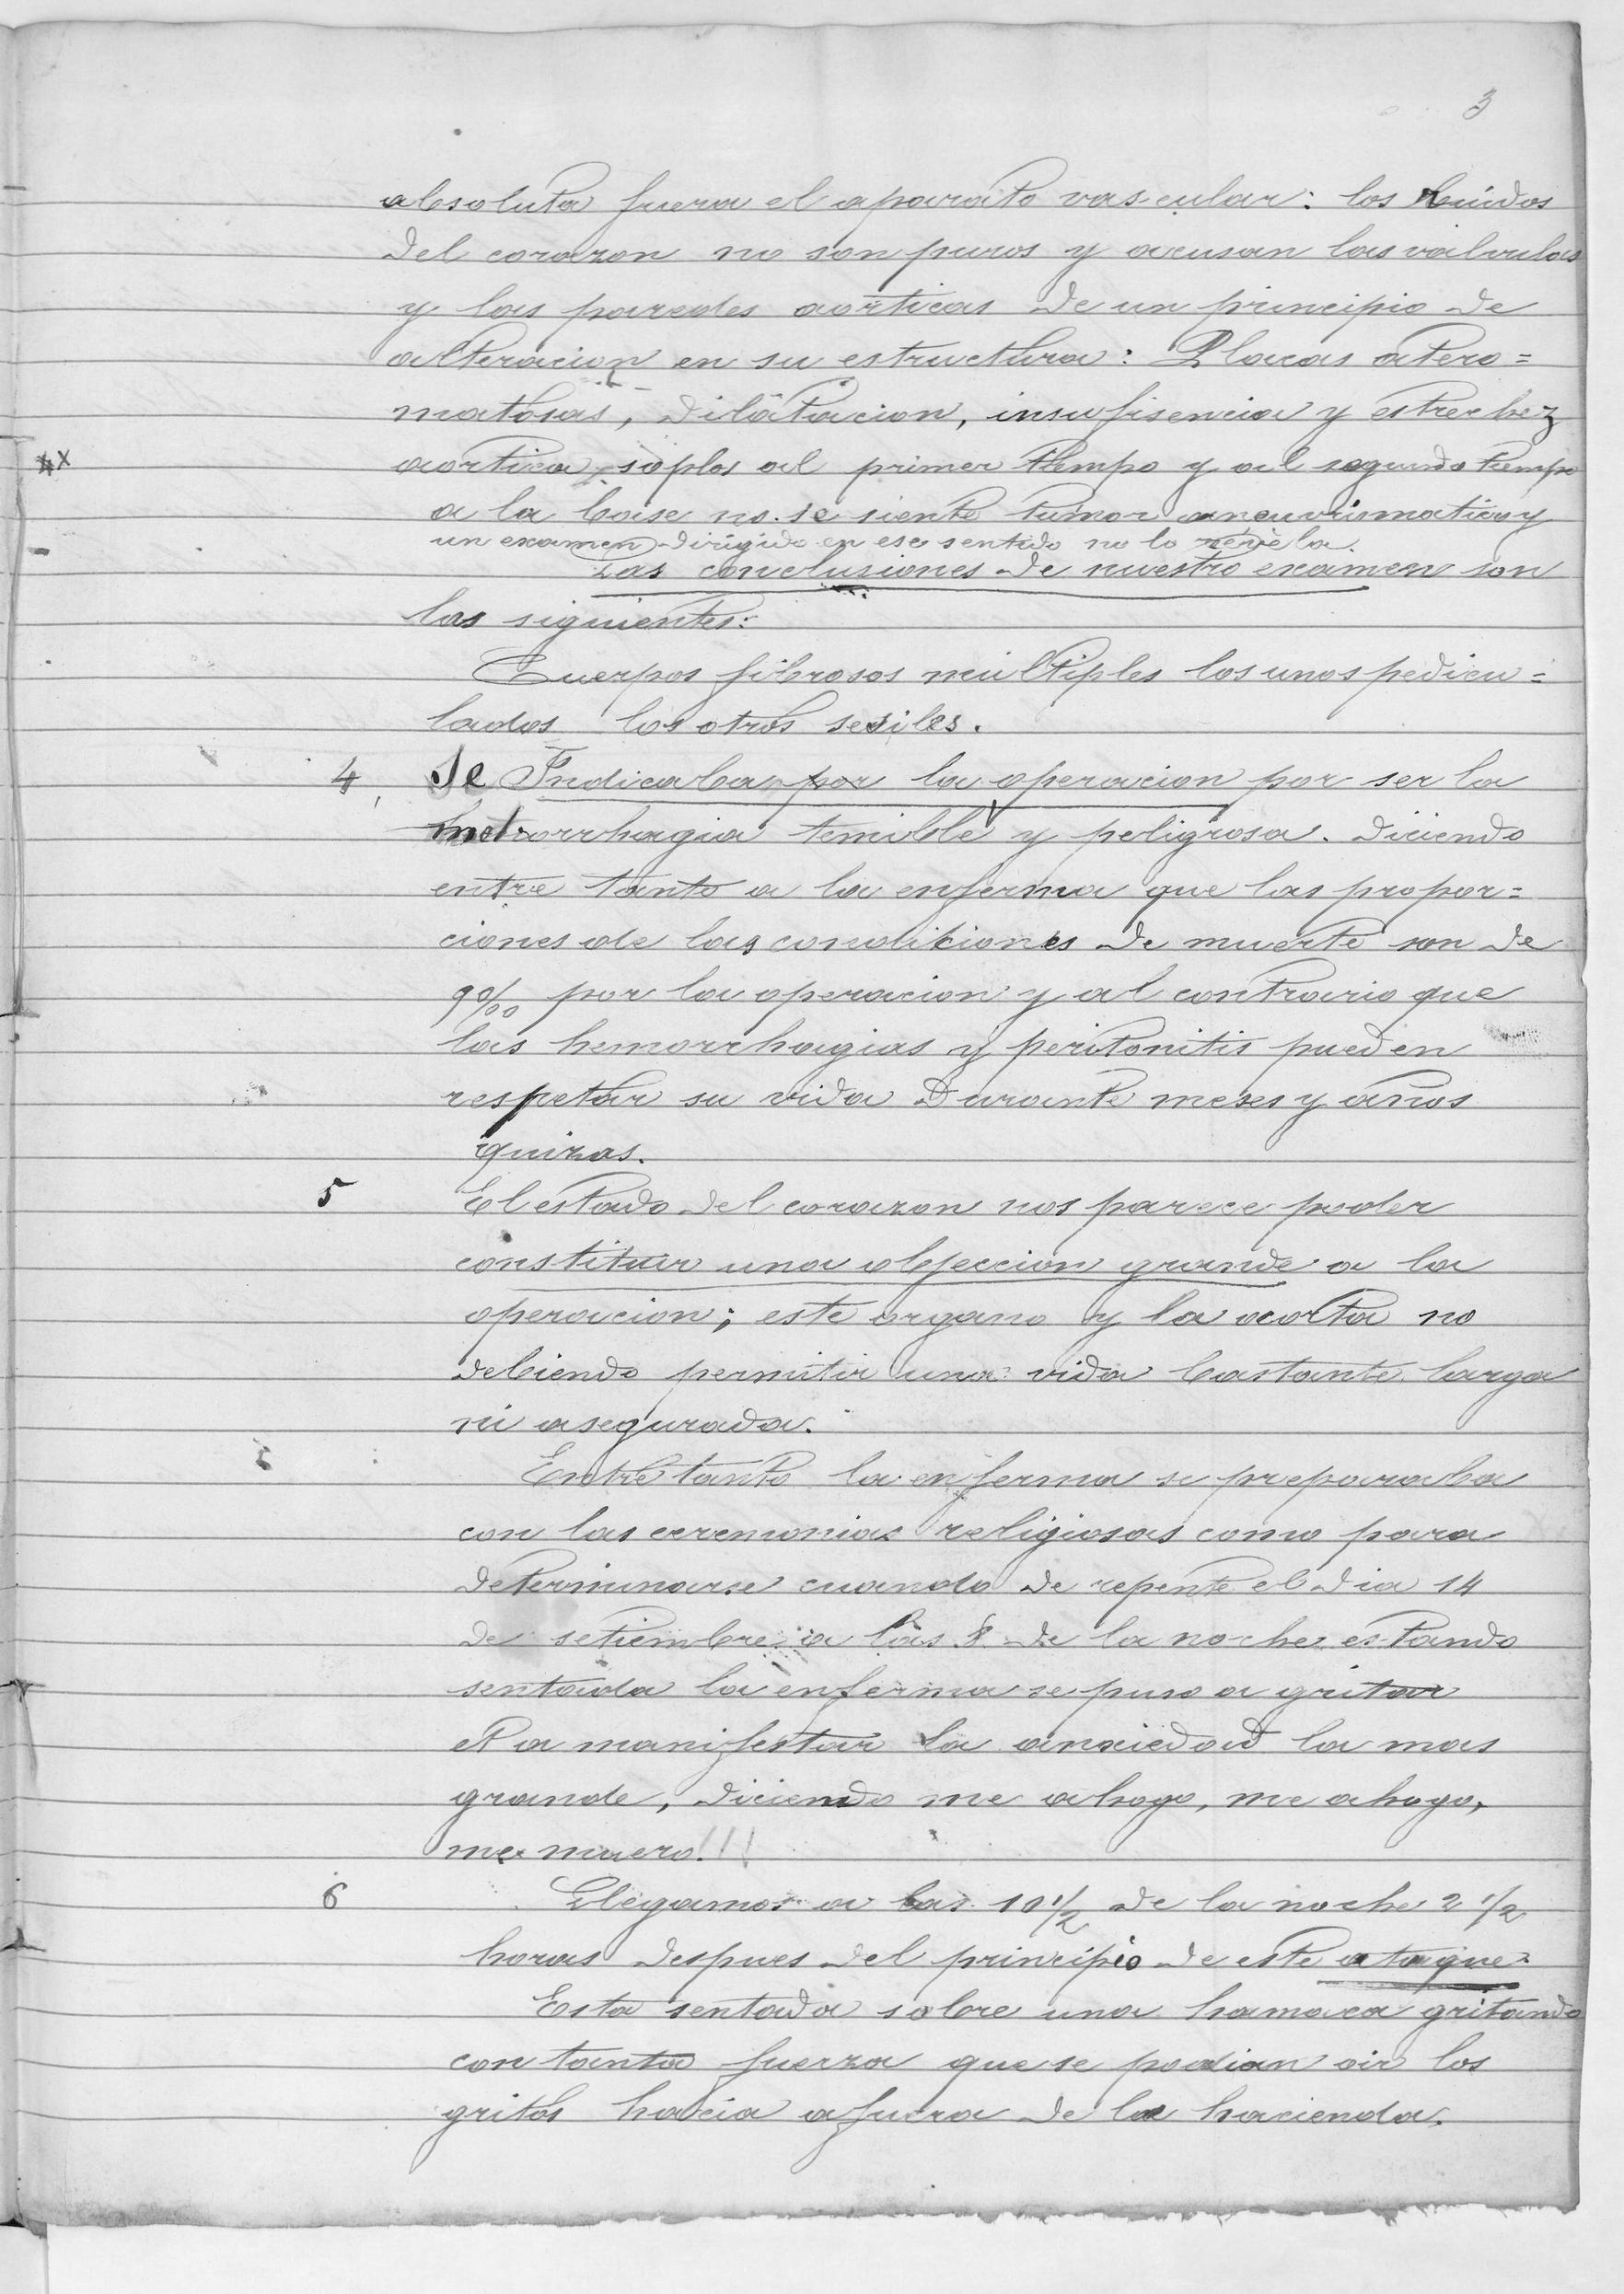 3
absoluta fuera el aparato vascular: los Ruidos
del corazon no son puros y acusan las valvulas
y las paredes aorticas de un principio de
alteracion en su estructura: Placas atero=
matosas, dilatacion, insufisencia y estrechez
aortica, soplos al primer tiempo y al segundo tiempo
a la base no se siente tumor aneurismatico y
un examen dirigido en ese sentido no lo revela.
Las conclusiones de nuestro examen son
las siguientes:
Cuerpos fibrosos múltiples los unos pedicu=
lados los otros sesiles.
4, Se Indicaba por la operacion por ser la
metrorrhagia temible y peligrosa. diciendo
entre tanto a la enferma que las propor=
ciones de las condiciones de muerte son de
90/00 por la operacion y al contrario que
las hemorrhagias y peritonitis pueden
respetar su vida Durante meses y años
quizas.
5 El estado del corazon nos parece poder
constituir una objeccion grande a la
operacion; este organo y la aolta no
debiendo permitir una vida bastante larga
ni asegurada.
Entre tanto la enferma se preparaba
con las ceremonias religiosas como para
determinarse cuando de repente el dia 14
de setiembre a las 8 de la noche estando
sentada la enferma se puso a gritar
et a manifestar la anxiedad la mas
grande, diciendo me ahogo, me ahogo,
me muero!!!
6 Llegamos a las 10 1/2 de la noche 2 1/2
horas despues del principio de este ataque.
Esta sentada sobre una hamaca gritando
con tanta fuerza que se podian oir los
gritos hacia afuera de la hacienda.